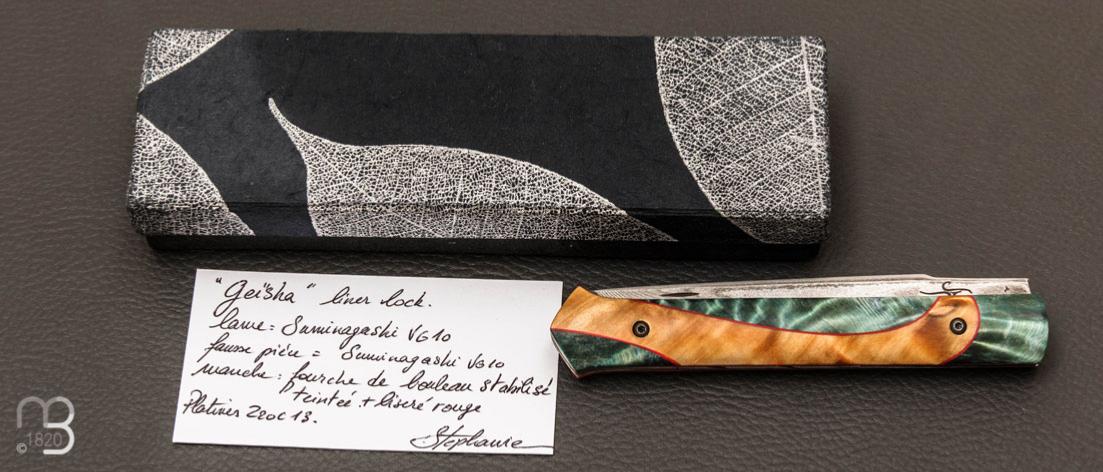 "Geïsha" liner lock.
lame = Suminagashi VG10
fausse pièce = Suminagashi VG10
manche : fourche de bouleau stabilisé
teintée + liseré rouge
Platines Z20C13.
Stephanie
MB
©1820